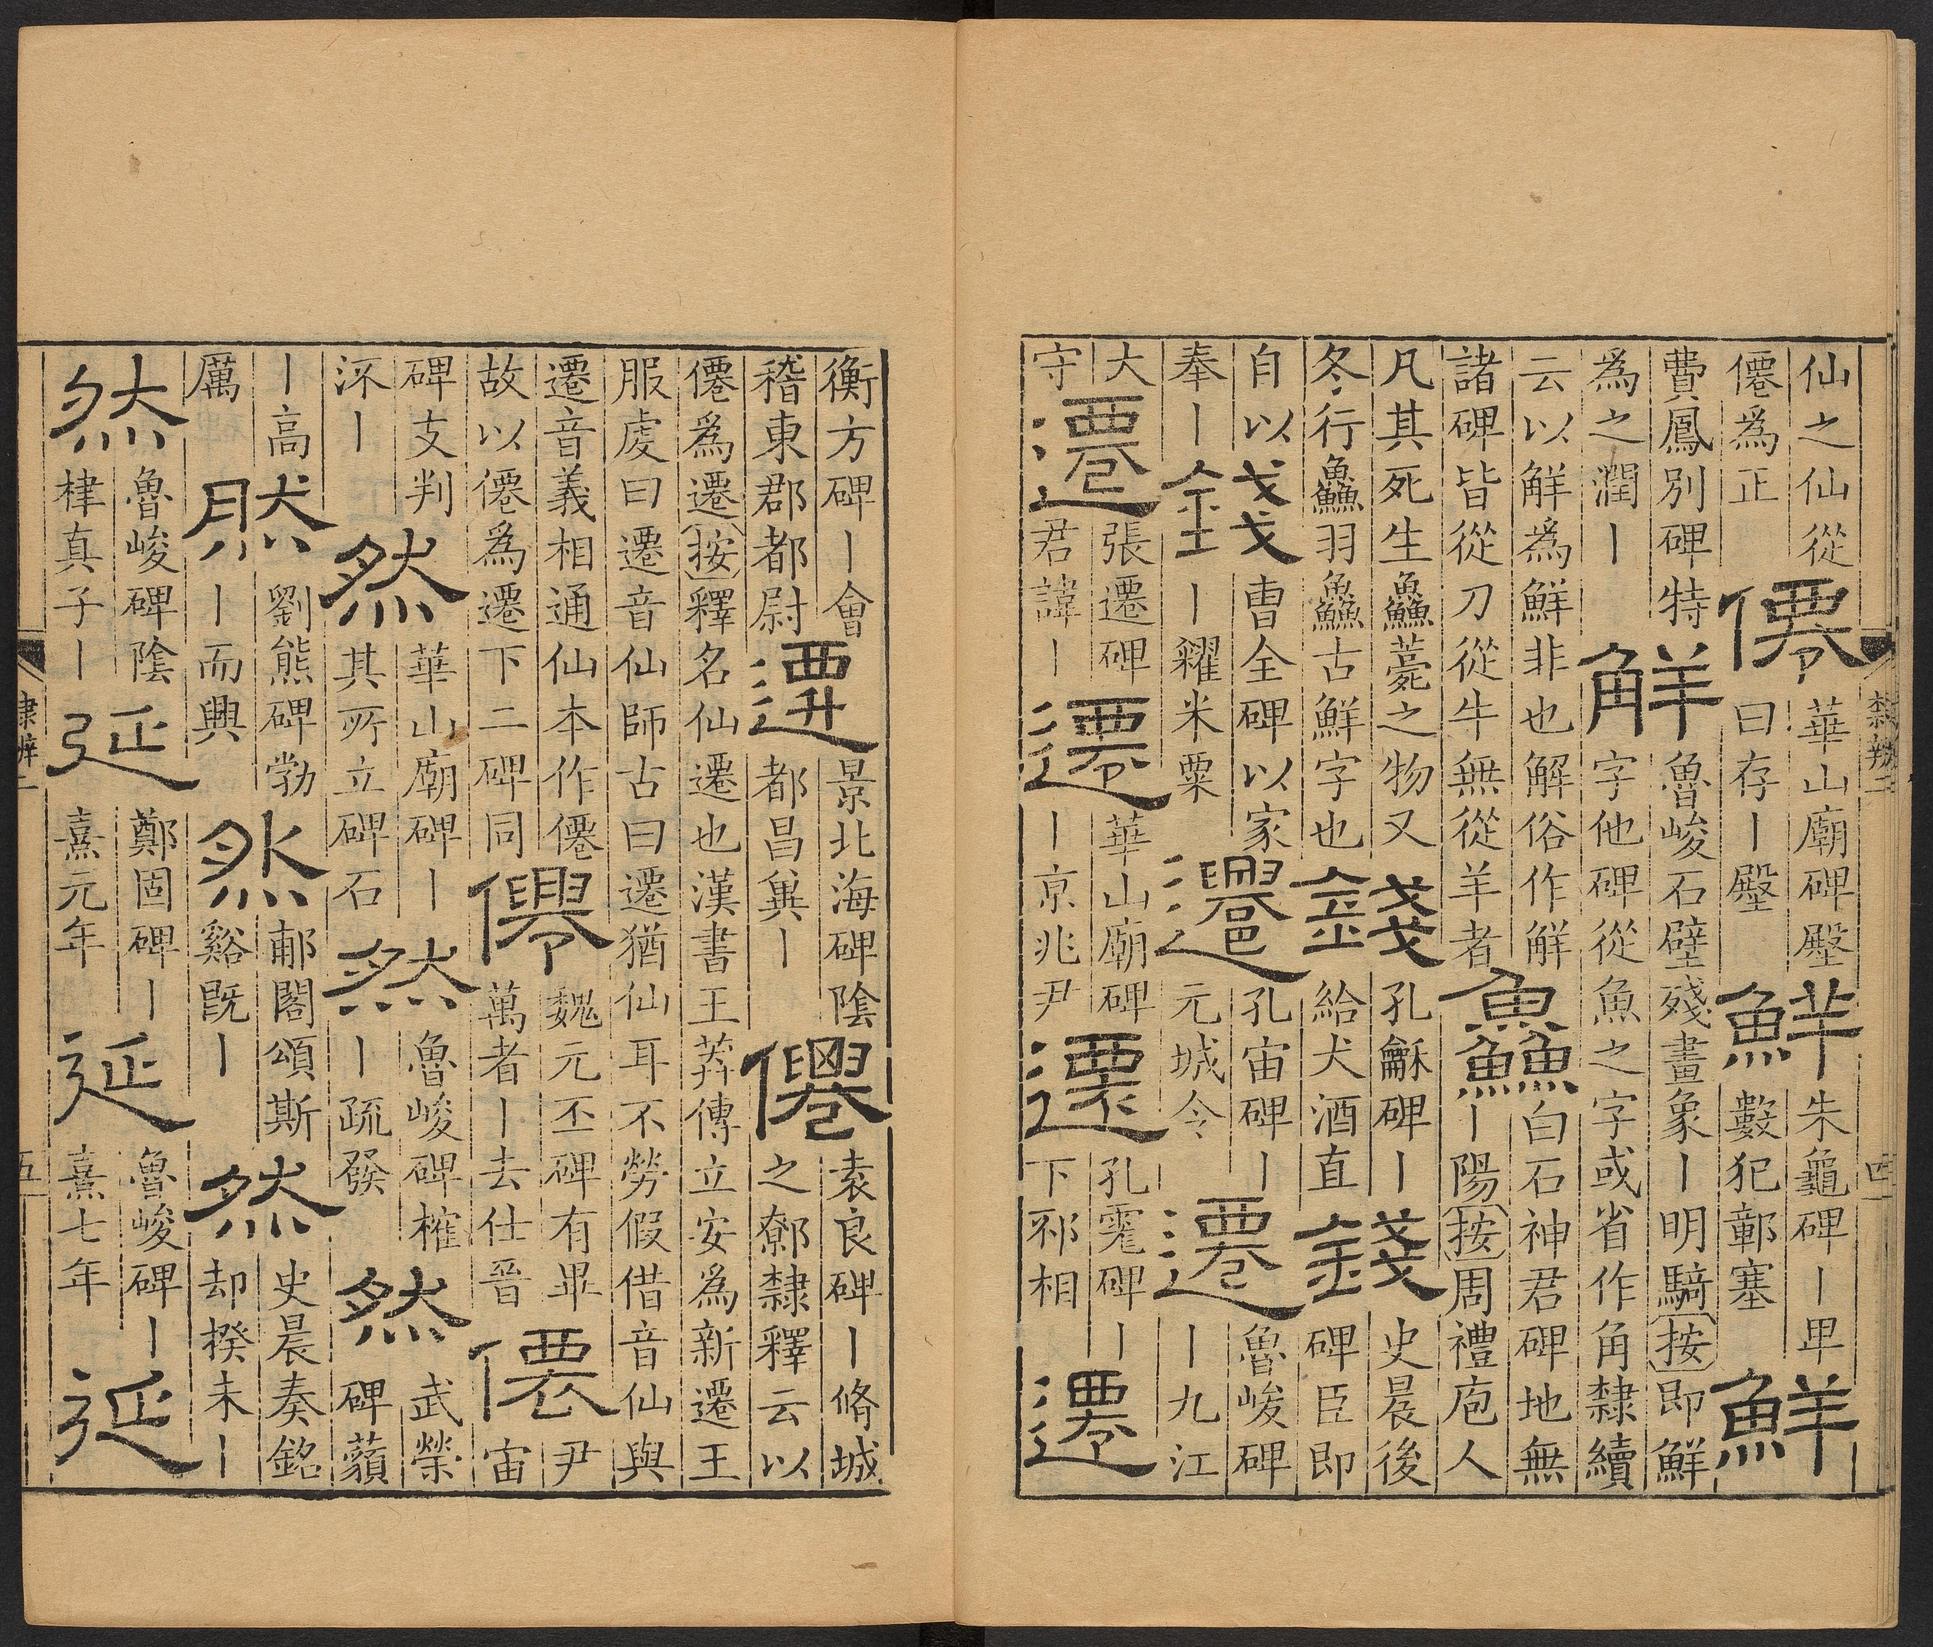 仙之仙從
僊為正
僊
華山廟碑殿
曰存丨殿
鮮
朱龜碑丨卑
數犯鄣塞
鮮
費鳳別碑特
為之潤丨
觧
魯峻石壁殘畫象丨明騎按即鮮
字他碑從魚之字或省作角隸續
云以觧為鮮非也解俗作觧
諸碑皆從刀從牛無從羊者
鱻
白石神君碑地無
丨陽按周禮庖人
凡其死生鱻薧之物又
冬行鱻羽鱻古鮮字也
錢
孔龢碑丨
給犬酒直
錢
史晨後
碑臣即
自以
奉丨
錢
曹全碑以家
丨糴米粟
遷
孔宙碑丨
元城令
遷
魯峻碑
丨九江
大
守
遷
張遷碑
君諱丨
遷
華山廟碑
丨京兆尹
遷
孔碑丨
下邳相
遷
隸辨二
四
衡方碑丨會
稽東郡都尉
遷
景北海碑陰
都昌㠱丨
僊
袁良碑丨脩城
之鄔隸釋云以
僊為遷按釋名仙遷也漢書王莽傳立安為新遷王
服虔曰遷音仙師古曰遷猶仙耳不勞假借音仙與
遷音義相通仙本作僊
故以僊為遷下二碑同
僊
魏元丕碑有畢
萬者丨去仕晉
僊
尹
宙
碑支判
丨
然
華山廟碑丨
其所立碑石
然
魯峻碑榷
丨疏發
然
武榮
碑蘋
丨高
厲
然
劉熊碑勃
丨而興
然
郙閣頌斯
谿既丨
然
史晨奏銘
却揆未丨
然
魯峻碑陰
真子丨
延
鄭固碑丨
熹元年
延
魯峻碑丨
熹七年
延
隸辨二
五